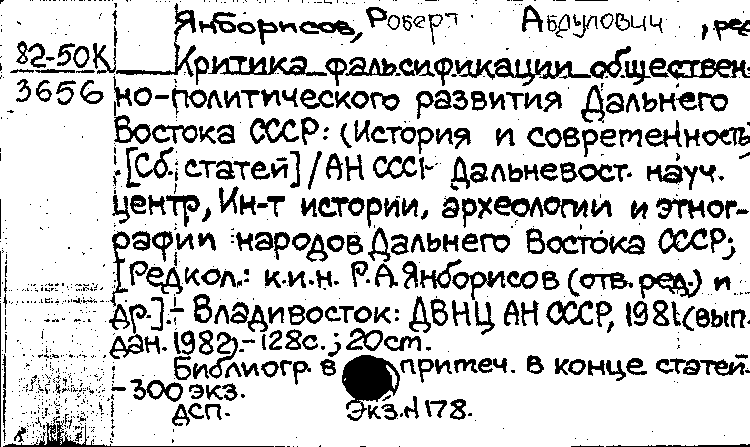 Янборисов, Роберт Абдулович, ред.
82-50К Критика фальсификации обществен-
3656 но-политического развития Дальнего
Востока СССР: (История и современность)
.[Сб. статей]/АН СССР Дальневост. науч.
центр, Ин-т истории, археологии и этног-
рафии народов Дальнего Востока СССР;
[Редкол.: к.и.н. Р.А.Янборисов (отв. ред.) и
др.].- Владивосток: ДВНЦ АН СССР, 1981.(вып.
дан. 1982).-128с.; 20cm.
Библиогр. в примеч. в конце статей.
-300 экз.
ДСП. Экз.N178.